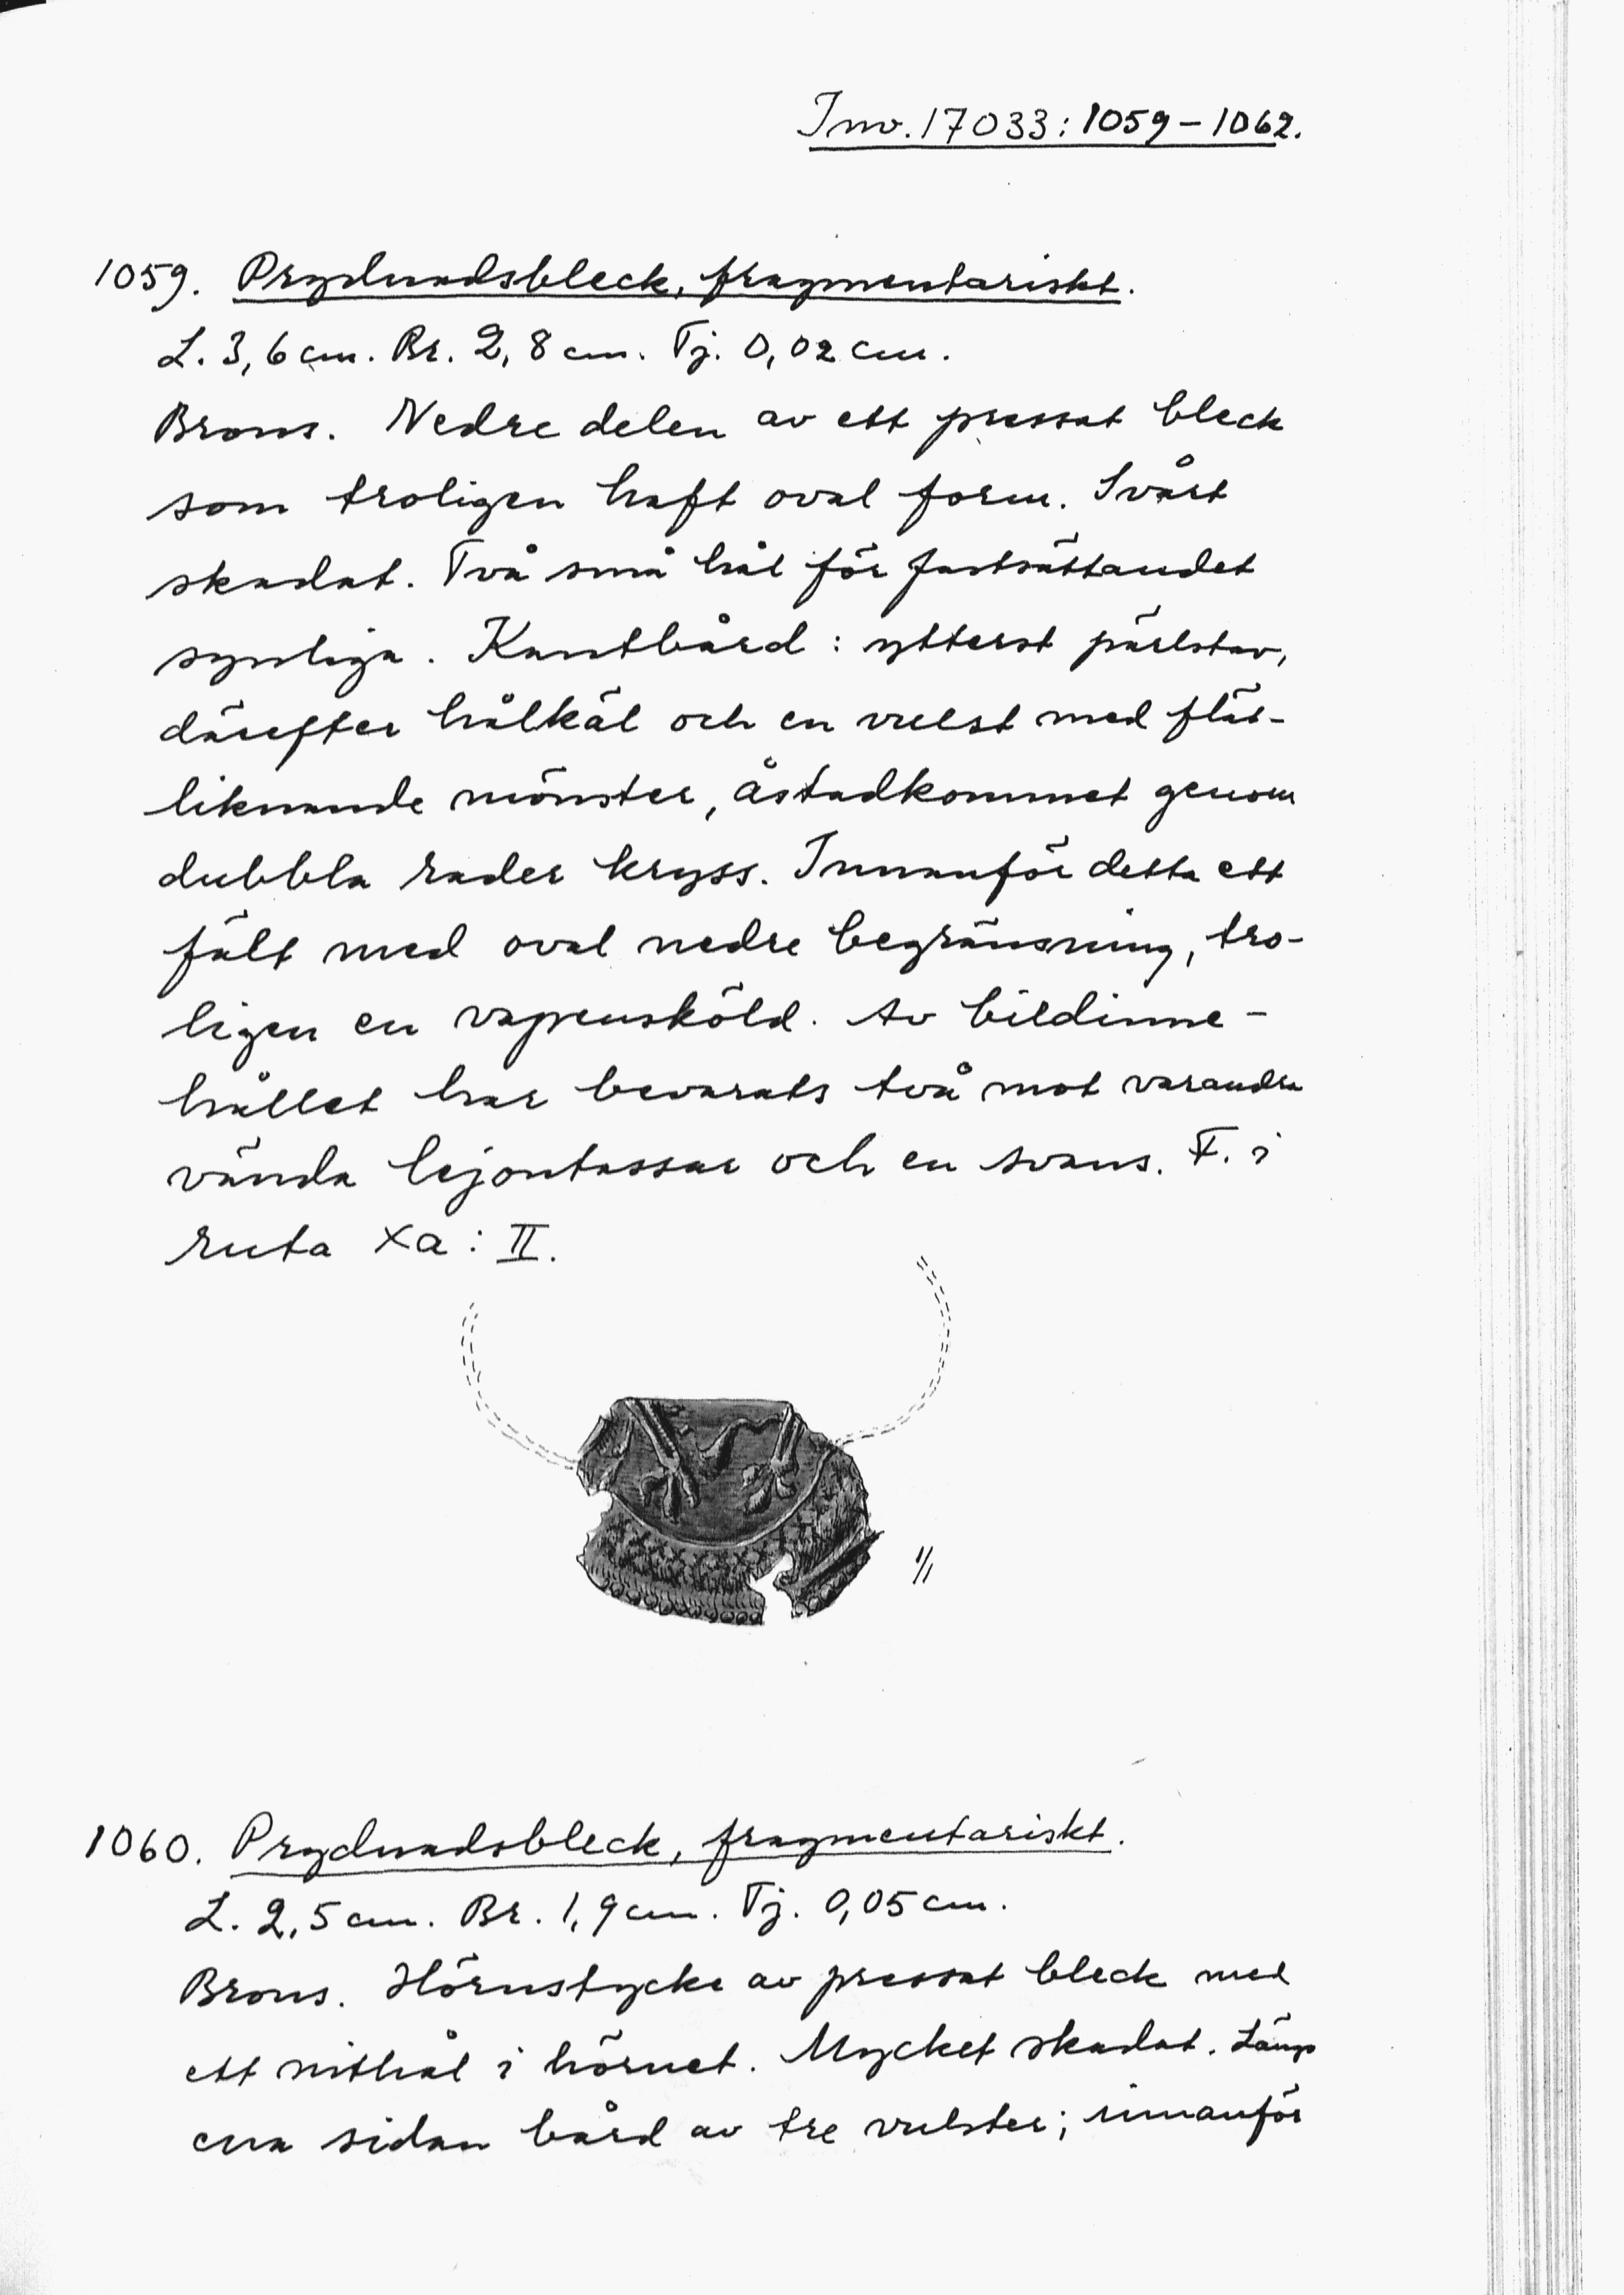 Inv. 17033:1059-1062.
1059. Prydnadsbleck, fragmentariskt.
L. 3,6 cm. Br. 2,8 cm. Tj. 0,02 cm.
Brons. Nedre delen av ett pressat bleck
som troligen haft oval form. Svårt
skadat. Två små hål för fastsättandet
synliga. Kantbård: ytterst pärlstav,
därefter hålkäl och en vulst med flät-
liknande mönster, åstadkommet genom
dubbla rader kryss. Innanför detta ett
fält med oval nedre begränsning, tro-
ligen en vapensköld. Av bildinne-
hållet har bevarats två mot varandra
vända lejontassar och en svans. F. i
ruta Xa: II.
1/1
1060. Prydnadsbleck, fragmentariskt.
L. 2,5 cm. Br. 1,9 cm. Tj. 0,05 cm.
Brons. Hörnstycke av pressat bleck med
ett nithål i hörnet. Mycket skadat. Längs
ena sidan bård av tre vulster; innanför